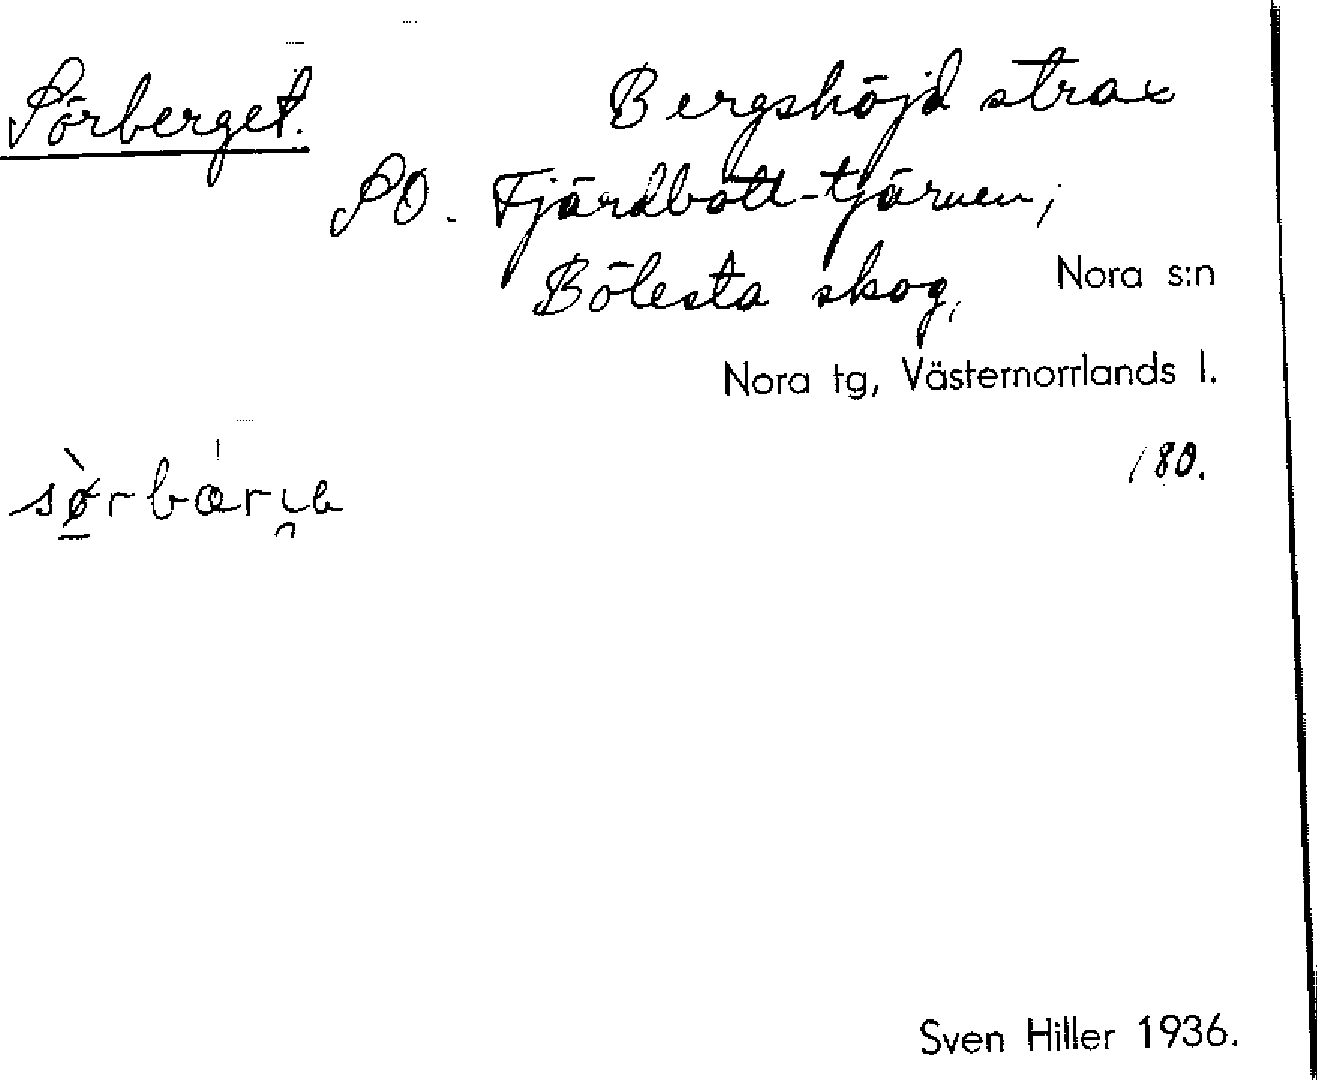 Sörberget. Bergshöjd strax
SO. Fjärdbott-tjärnen,
Bölesta skog, Nora s:n
Nora tg, Västernorrlands l.
180.
Sven Hiller 1936.